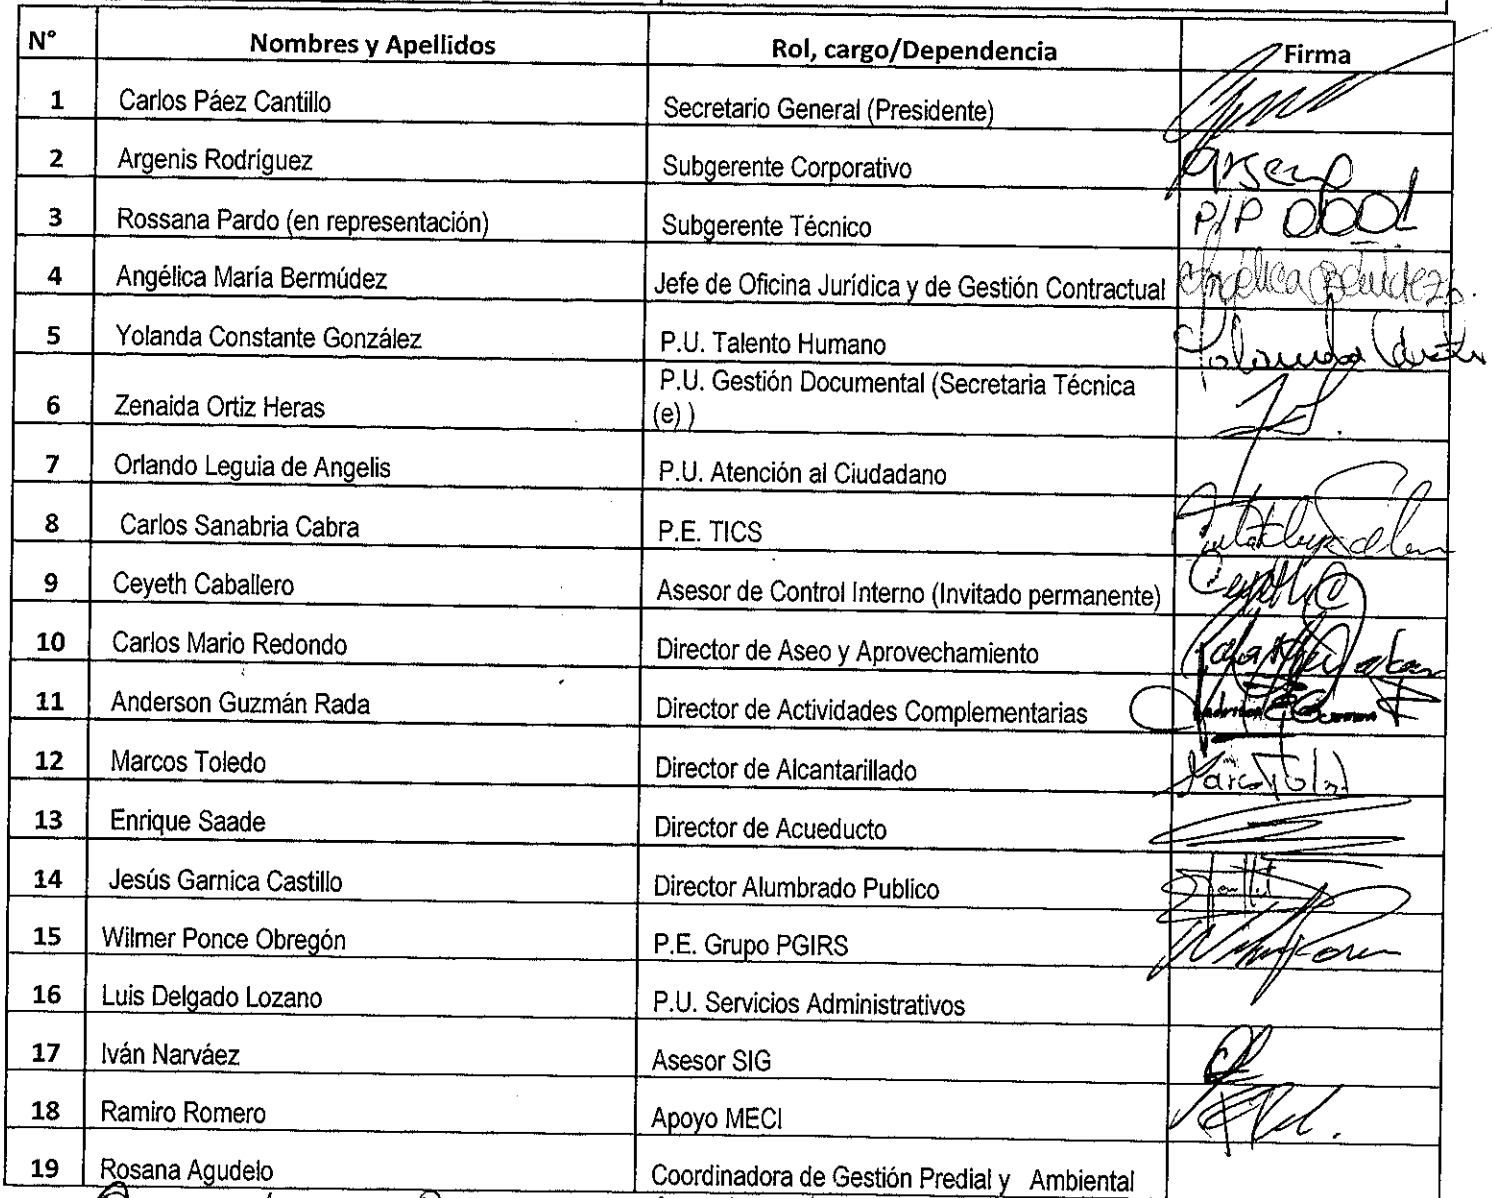 N° Nombres y Apellidos Rol, cargo/Dependencia Firma
1 Carlos Páez Cantillo Secretario General (Presidente)
2 Argenis Rodríguez Subgerente Corporativo
3 Rossana Pardo (en representación) Subgerente Técnico P/P
4 Angélica María Bermúdez Jefe de Oficina Jurídica y de Gestión Contractual Angélica
5 Yolanda Constante González P.U. Talento Humano Yolanda
6 Zenaida Ortiz Heras P.U. Gestión Documental (Secretaria Técnica
(e) )
7 Orlando Leguia de Angelis P.U. Atención al Ciudadano
8 Carlos Sanabria Cabra P.E. TICS
9 Ceyeth Caballero Asesor de Control Interno (Invitado permanente)
10 Carlos Mario Redondo Director de Aseo y Aprovechamiento
11 Anderson Guzmán Rada Director de Actividades Complementarias
12 Marcos Toledo Director de Alcantarillado
13 Enrique Saade Director de Acueducto
14 Jesús Garnica Castillo Director Alumbrado Publico
15 Wilmer Ponce Obregón P.E. Grupo PGIRS
16 Luis Delgado Lozano P.U. Servicios Administrativos
17 Iván Narváez Asesor SIG
18 Ramiro Romero Apoyo MECI
19 Rosana Agudelo Coordinadora de Gestión Predial y Ambiental